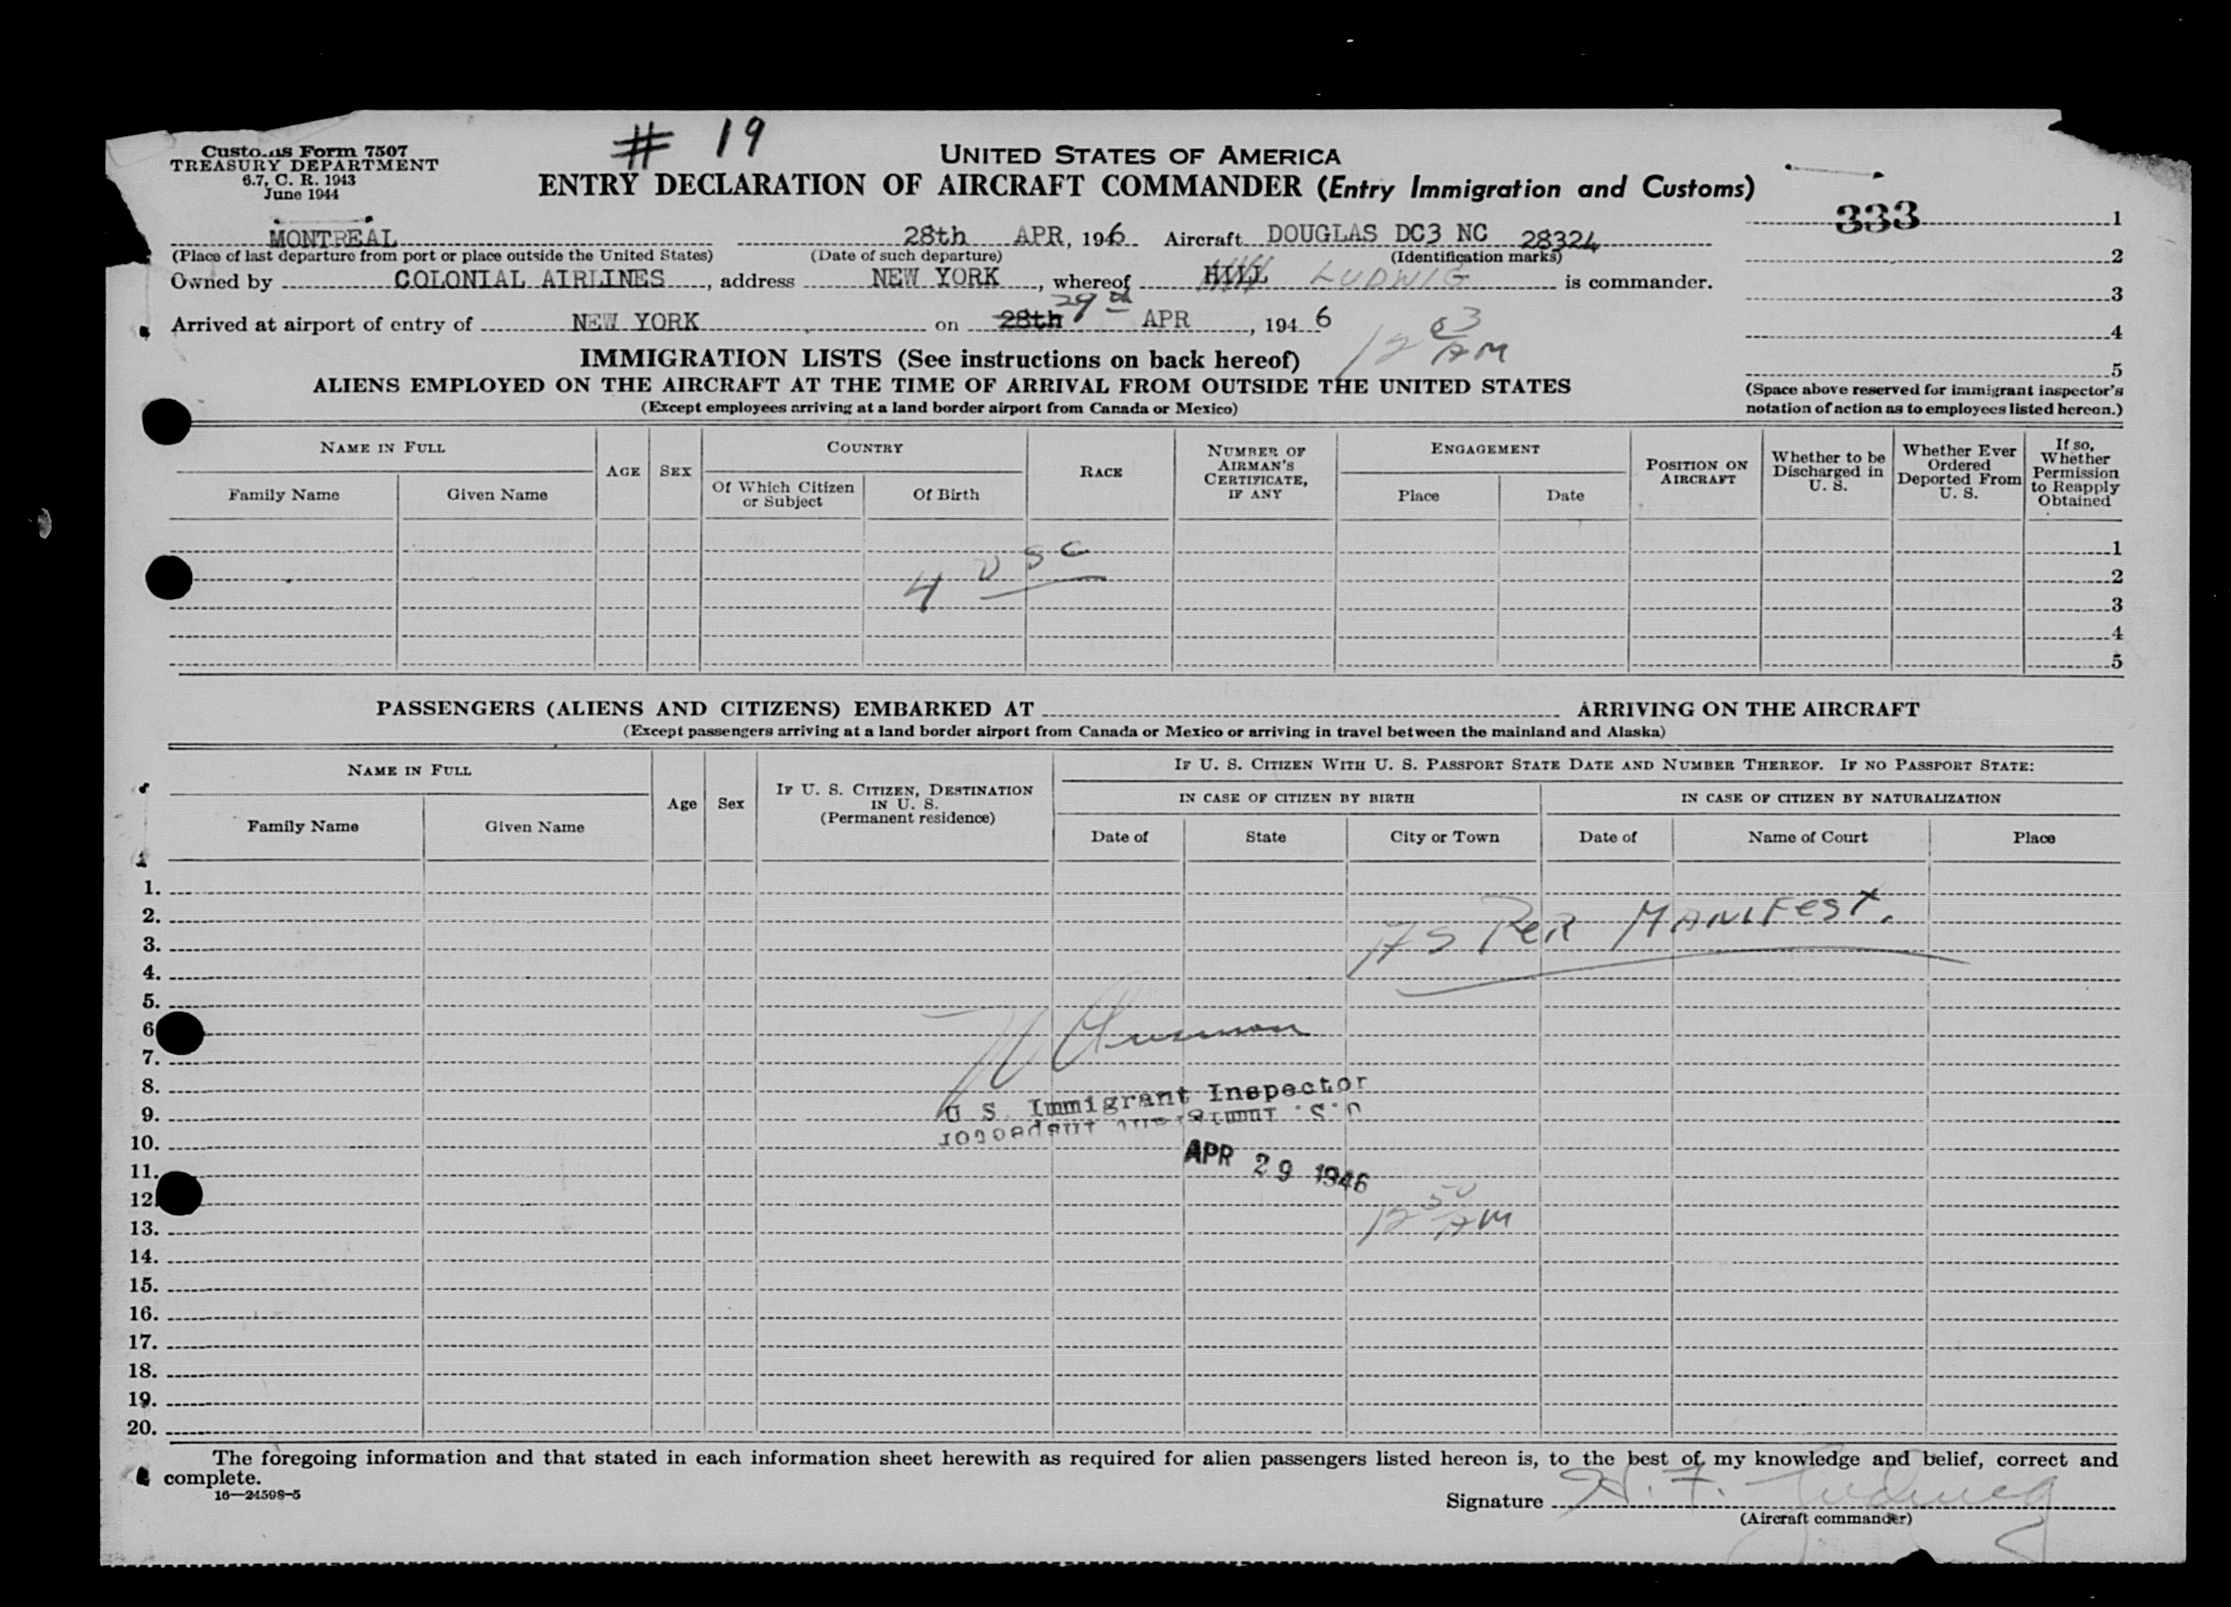 # 19
Customs Form 7507
TREASURY DEPARTMENT
6.7, C. R. 1943
June 1944
UNITED STATES OF AMERICA
ENTRY DECLARATION OF AIRCRAFT COMMANDER (Entry Immigration and Customs)
333
1
2
3
4
5
(Space above reserved for immigrant inspector's
notation of action as to employees listed hereon.)
MONTREAL 28th APR, 1946 Aircraft DOUGLAS DC3 NC 28324
(Place of last departure from port or place outside the United States) (Date of such departure) (Identification marks)
Owned by COLONIAL AIRLINES, address NEW YORK, whereof HILL LUDWIG is commander.
Arrived at airport of entry of NEW YORK on 28th 29th APR, 1946
12 03 AM
IMMIGRATION LISTS (See instructions on back hereof)
ALIENS EMPLOYED ON THE AIRCRAFT AT THE TIME OF ARRIVAL FROM OUTSIDE THE UNITED STATES
(Except employees arriving at a land border airport from Canada or Mexico)
NAME IN FULL
Family Name
Given Name
AGE
SEX
COUNTRY
Of Which Citizen
or Subject
Of Birth
RACE
NUMBER OF
AIRMAN'S
CERTIFICATE,
IF ANY
ENGAGEMENT
Place
Date
POSITION ON
AIRCRAFT
Whether to be
Discharged in
U. S.
Whether Ever
Ordered
Deported From
U. S.
If so,
Whether
Permission
to Reapply
Obtained
1
2
3
4
5
4 USC
PASSENGERS (ALIENS AND CITIZENS) EMBARKED AT ARRIVING ON THE AIRCRAFT
(Except passengers arriving at a land border airport from Canada or Mexico or arriving in travel between the mainland and Alaska)
NAME IN FULL
Family Name
Given Name
Age
Sex
IF U. S. CITIZEN, DESTINATION
IN U. S.
(Permanent residence)
IF U. S. CITIZEN WITH U. S. PASSPORT STATE DATE AND NUMBER THEREOF. IF NO PASSPORT STATE:
IN CASE OF CITIZEN BY BIRTH
Date of
State
City or Town
IN CASE OF CITIZEN BY NATURALIZATION
Date of
Name of Court
Place
1.
2.
3.
4.
5.
6
7.
8.
9.
10.
11.
12.
13.
14.
15.
16.
17.
18.
19.
20.
AS PER MANIFEST.
U. S. Immigrant Inspector
U. S. Immigrant Inspector
APR 29 1946
12 50 AM
The foregoing information and that stated in each information sheet herewith as required for alien passengers listed hereon is, to the best of my knowledge and belief, correct and
complete.
16—24598-5
Signature H. F. Ludwig
(Aircraft commander)